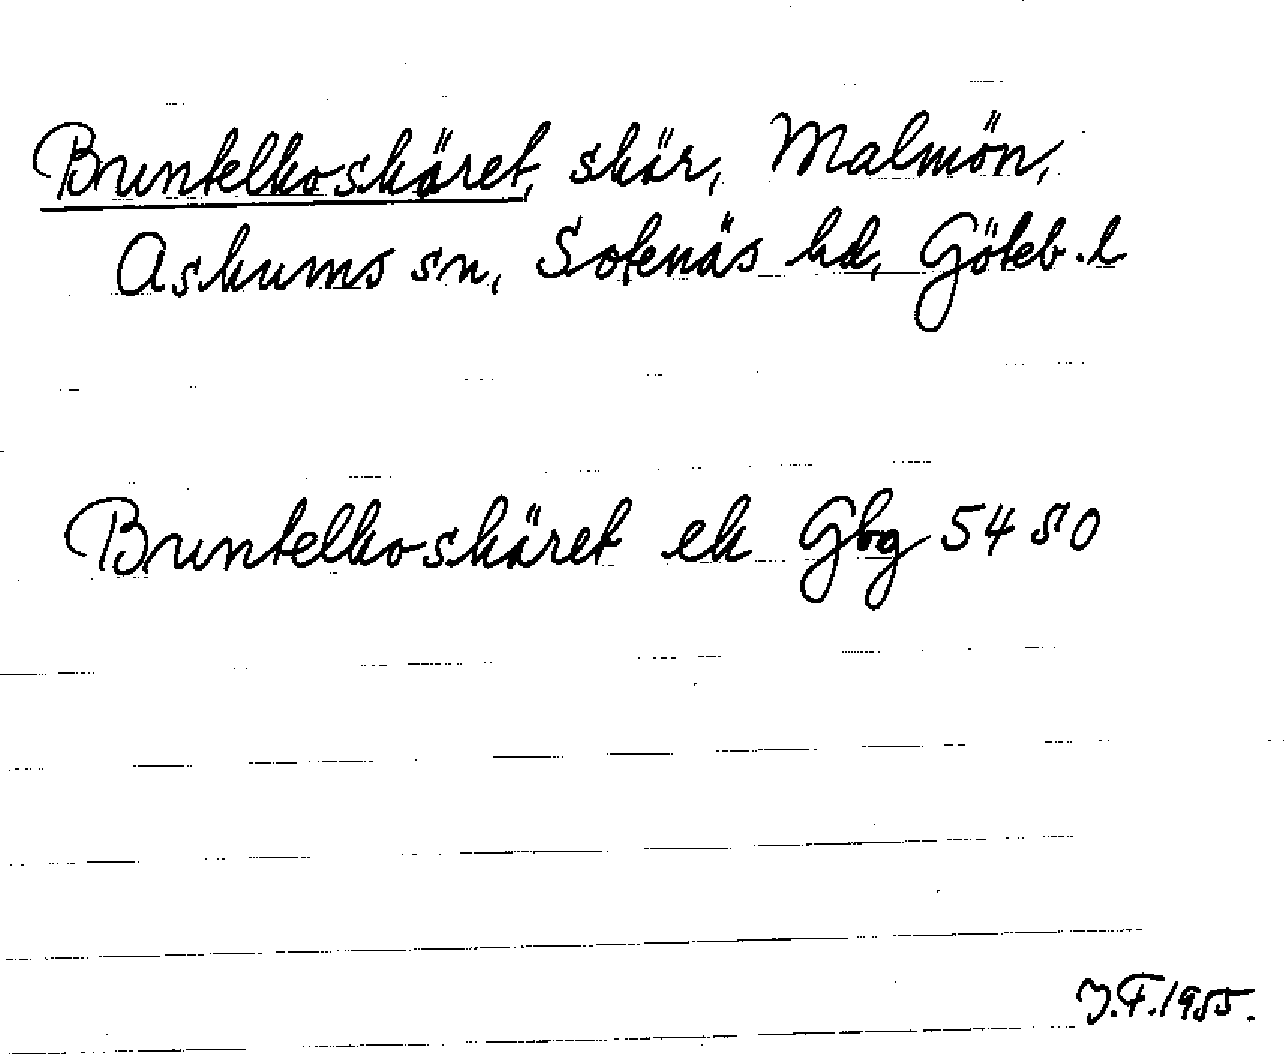 Bruntelkoskäret, skär, Malmön,
Askums sn, Sotenäs hd, Göteb. l
Bruntelkoskäret ek Gbg 5450
J.F. 1955.